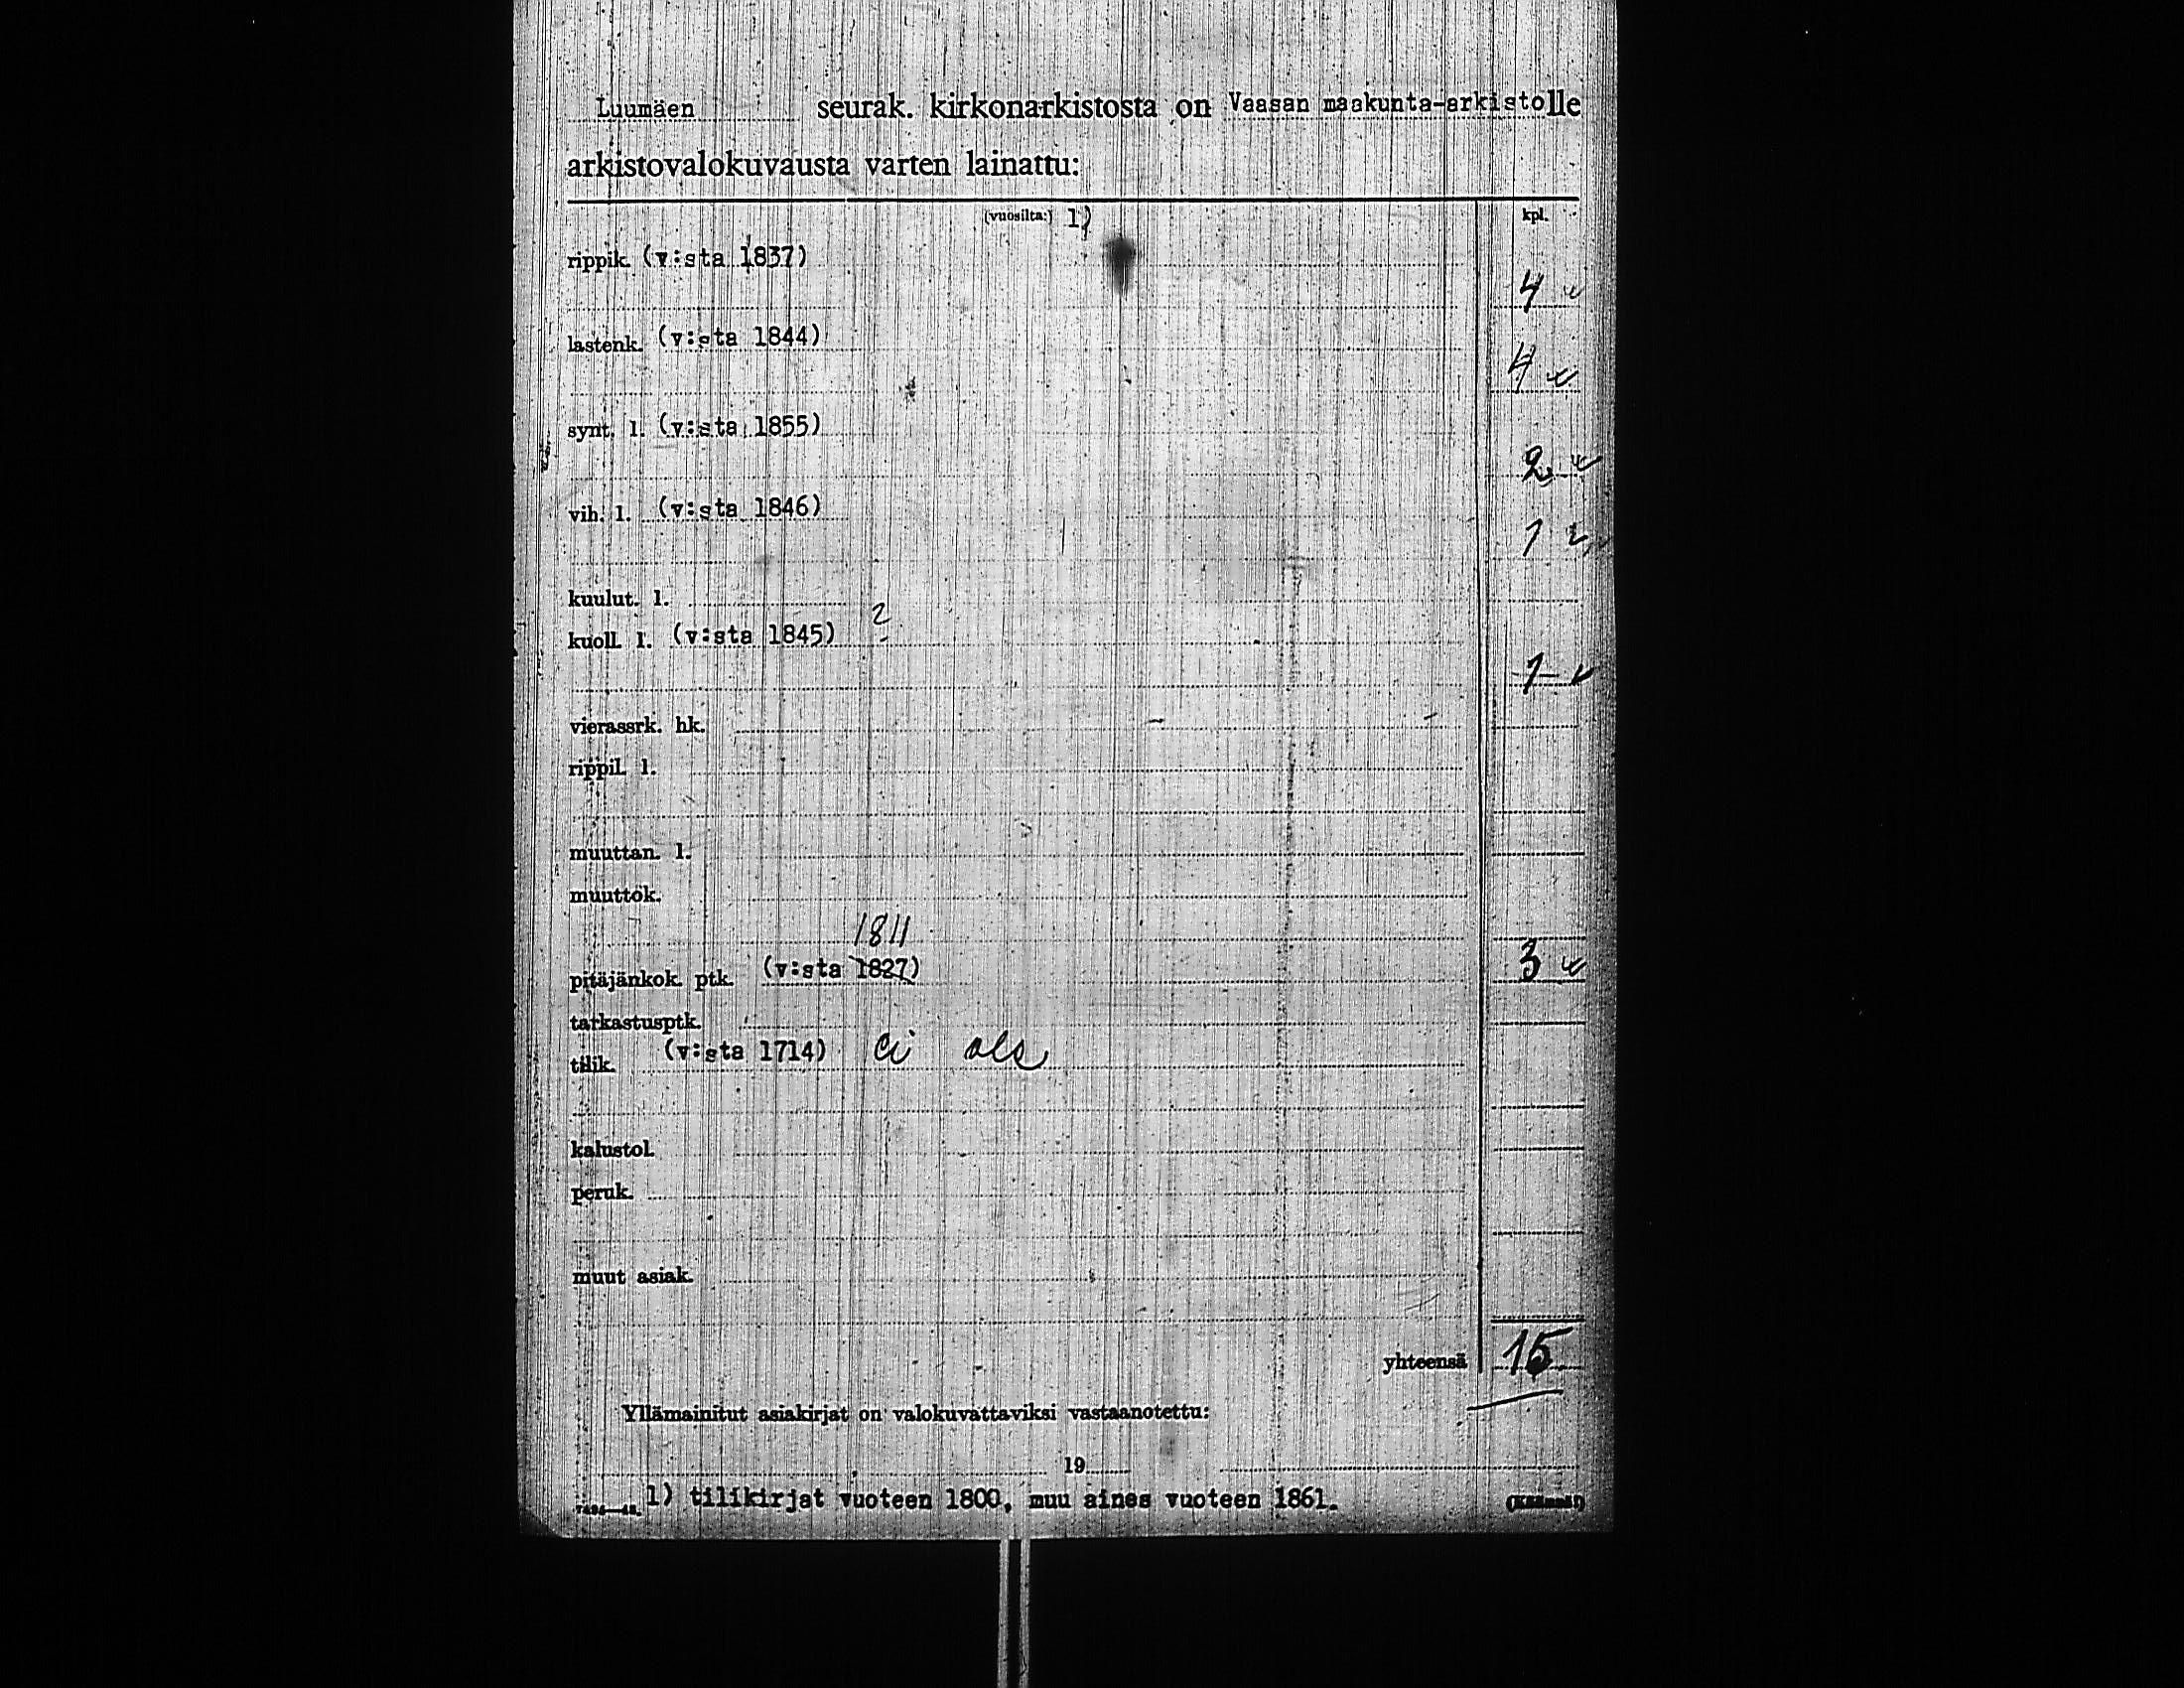 Luumäen seurak. kirkonarkistosta on Vaasan maakunta-arkistolle
arkistovalokuvausta varten lainattu:
(vuosilta:) 1) kpl.
rippik. (v:sta 1837)
4
lastenk. (v:sta 1844)
4
synt. l. (v:sta 1855)
2
vih. l. (v:sta 1846)
1
kuulut. l.
kuoll. l. (v:sta 1845) ?
1
vierassrk. hk.
rippil. l.
muuttan. l.
muuttok.
1811
pitäjänkok. ptk. (v:sta 1827) 3
tarkastusptk.
tilik. (v:sta 1714) ei ole
kalustol.
peruk.
muut asiak.
yhteensä 15
Yllämainitut asiakirjat on valokuvattaviksi vastaanotettu:
19
1) tilikirjat vuoteen 1800, muu aines vuoteen 1861. (Käännä!)